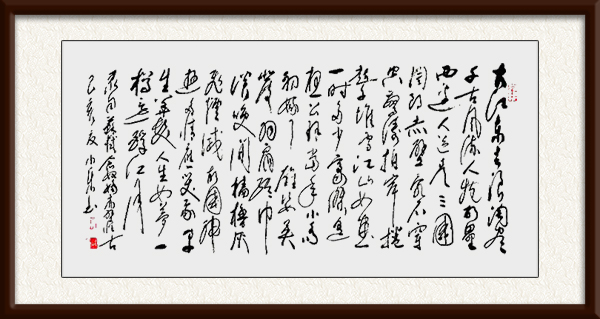 大江东去浪淘尽
千古风流人物故垒
西边人道是三国
周郎赤壁乱石穿
空惊涛拍岸捲
起千堆雪江山如画
一时多少豪杰遥
想公瑾当年小乔
初嫁了雄姿英
发羽扇纶巾
谈笑间樯橹灰
飞烟灭故国神
游多情应笑我早
生华发人生如梦一
樽还酹江月
苏轼念奴娇赤壁怀古
己亥夏书